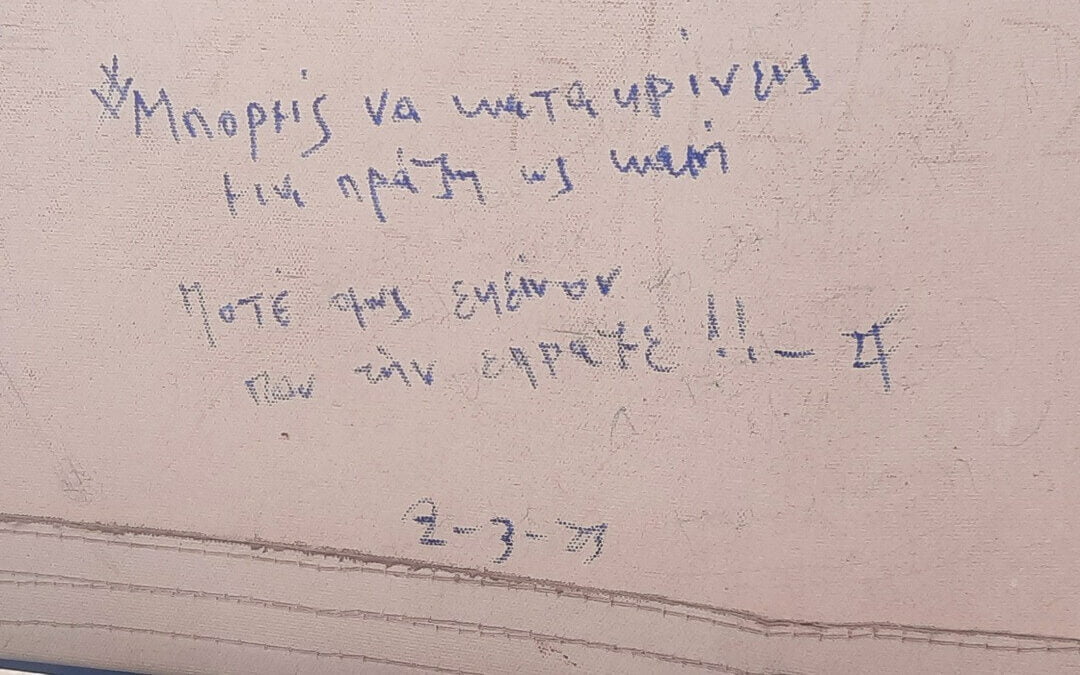 *Μπορείς να κατακρίνεις
μια πράξη ως κακή
Ποτέ όμως εκείνον
που την έπραξε !!.-
2-3-